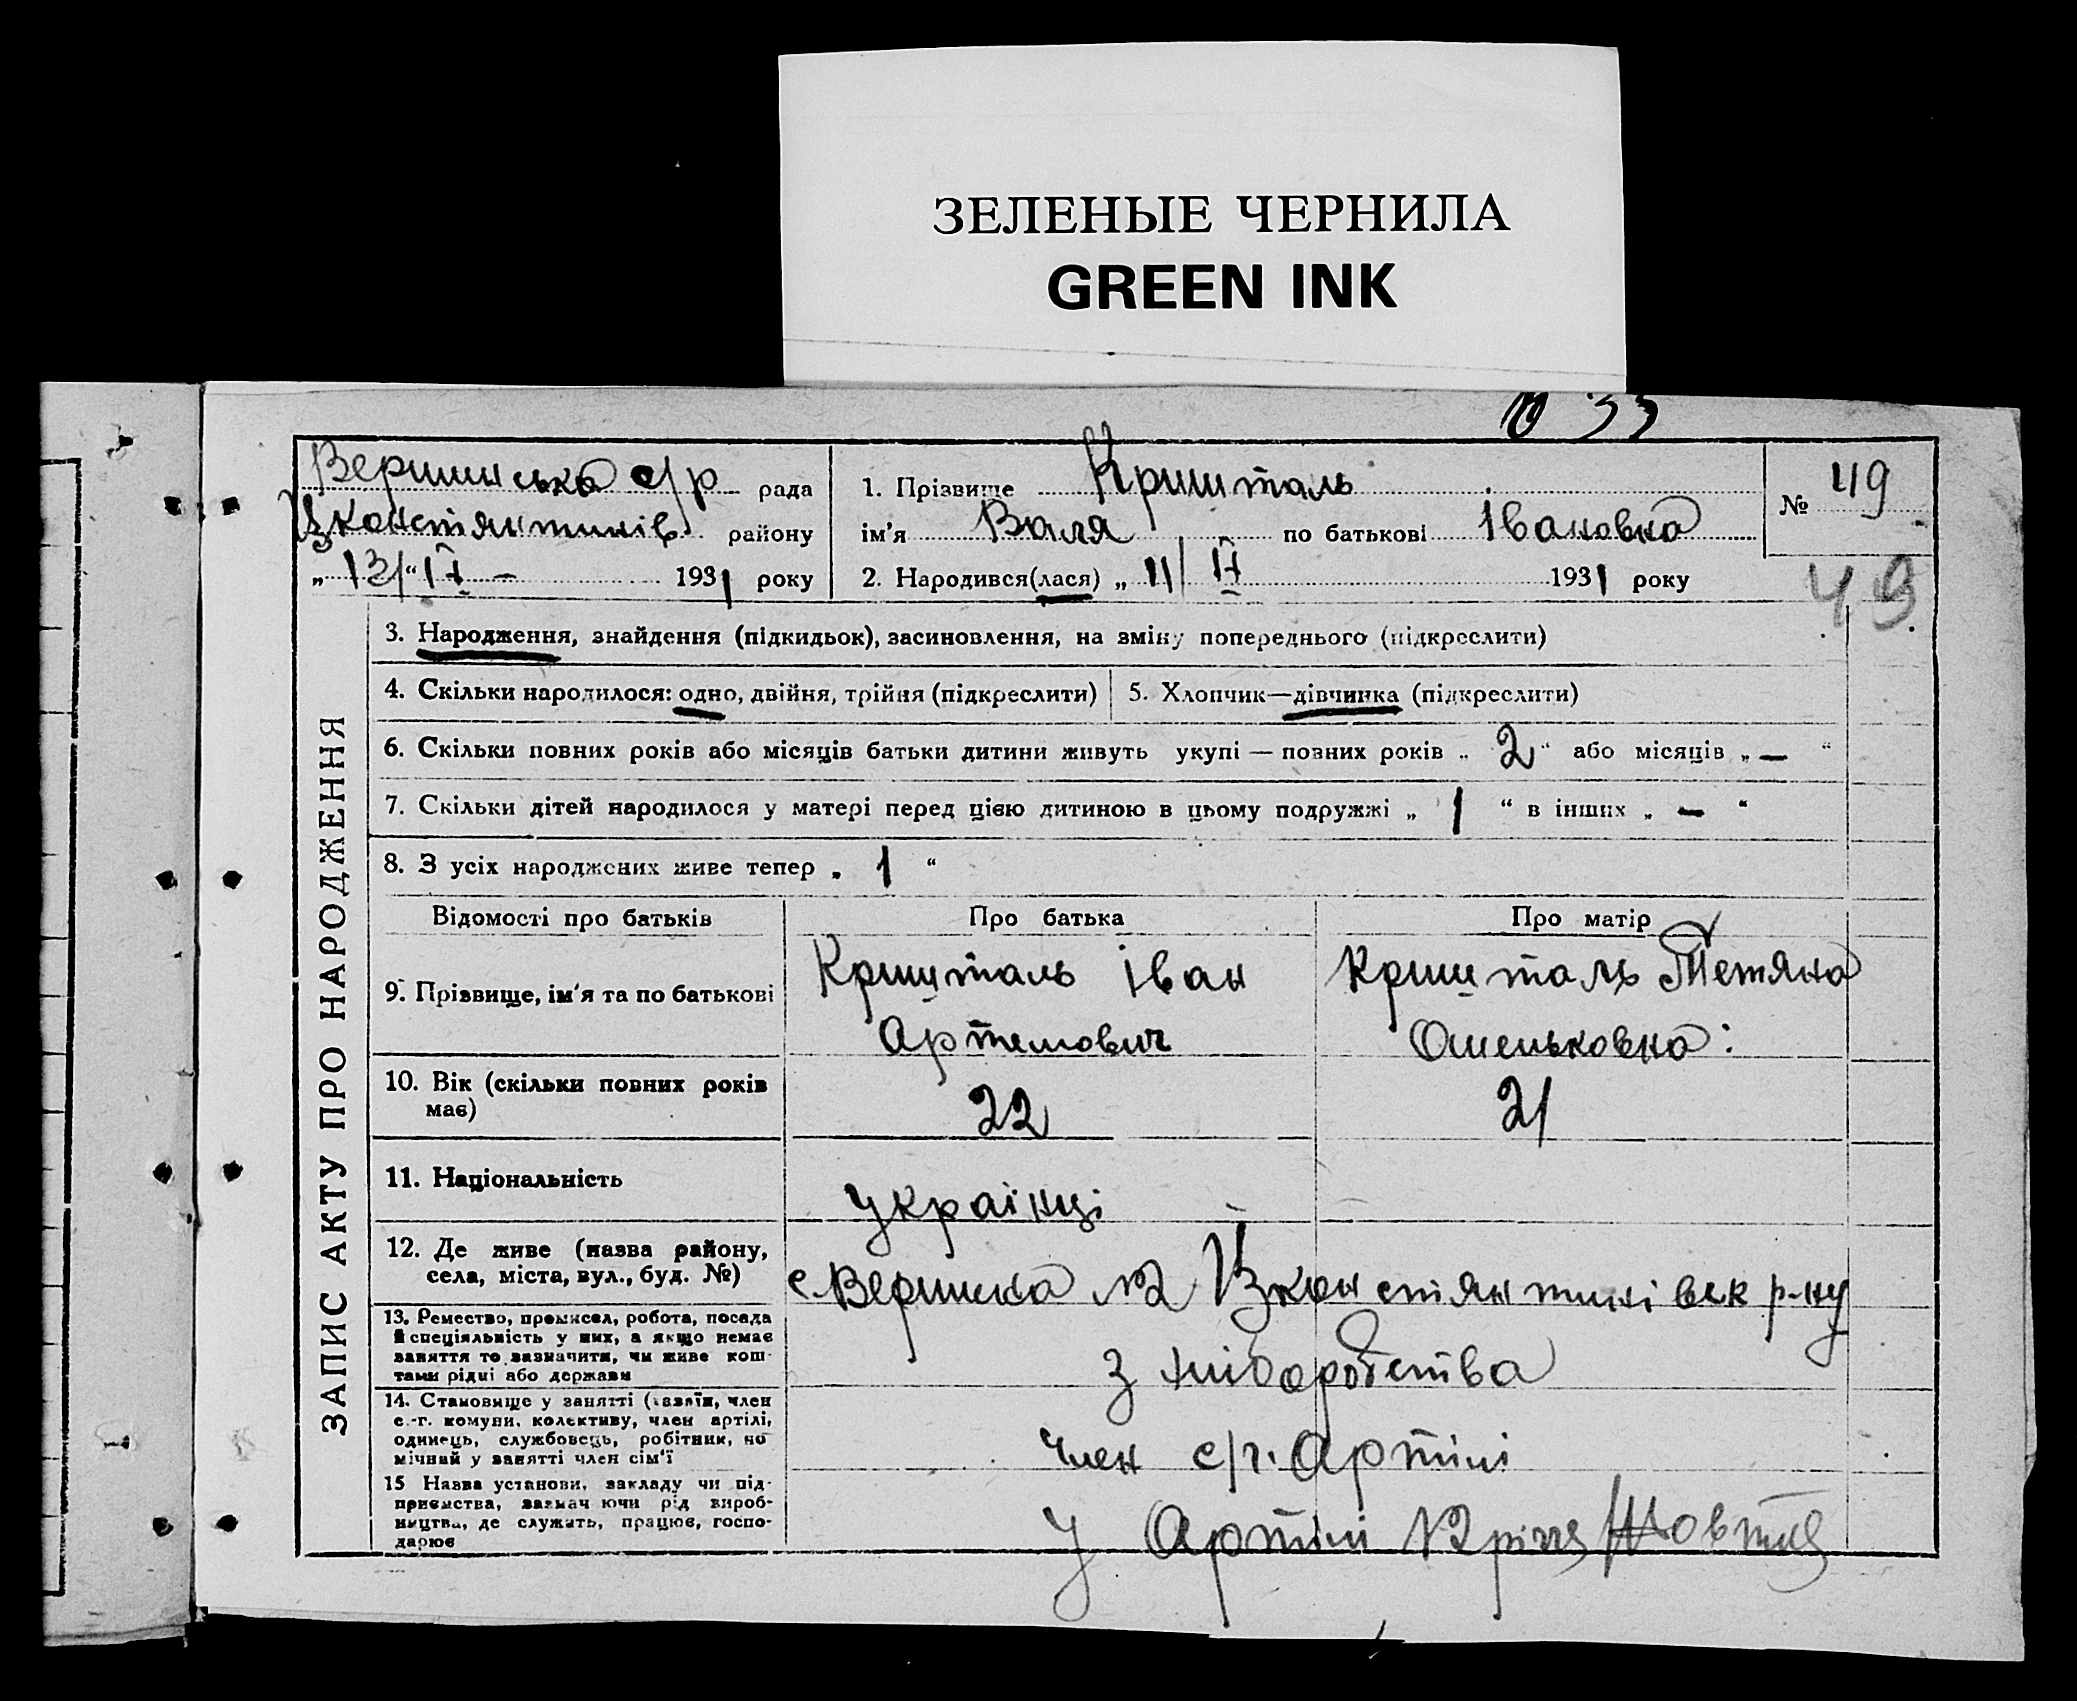 ЗЕЛЕНЫЕ ЧЕРНИЛА
GREEN INK
Вершинська с/р рада
району
„13“ IV – 1931 року
1. Прізвище Кришталь
ім'я Валя по батькові Івановна
2. Народився(лася) „11 IV 1931 року
№ 49
49
ЗАПИС АКТУ ПРО НАРОДЖЕННЯ
3. Народження, знайдення (підкидьок), засиновлення, на зміну попереднього (підкреслити)
4. Скільки народилося: одно, двійня, трійня (підкреслити)
5. Хлопчик—дівчинка (підкреслити)
6. Скільки повних років або місяців батьки дитини живуть укупі — повних років „ 2 “ або місяців „ — “
7. Скільки дітей народилося у матері перед цією дитиною в цьому подружжі „ 1 “ в інших „ — “
8. З усіх народжених живе тепер „ 1 “
Відомості про батьків
Про батька
Про матір
9. Прізвище, ім'я та по батькові
Кришталь Іван
Артемович
Кришталь Тетяна
10. Вік (скільки повних років
має)
22
21
11. Національність
українці
12. Де живе (назва району,
села, міста, вул., буд. №)
с. Вершина №2 р-ну
13. Ремество, промисел, робота, посада
й спеціяльність у них, а якщо немає
заняття то зазначити, чи живе кош-
тами рідні або держави
з хліборобства
14. Становище у занятті (хазяїн, член
с.-г. комуни, колективу, член артілі,
одинець, службовець, робітник, по
мічний у занятті член сім'ї
Член с/г. Артілі
15 Назва установи, закладу чи під-
приємства, зазнач ючи рід вироб-
ництва, де служить, працює, госпо-
дарює
У Артілі 12 річчя Жовтня